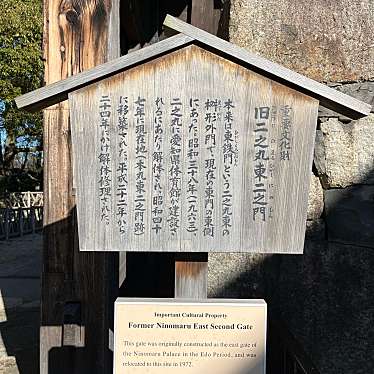 重要文化財
旧二之丸東二之門
きゅうにのまるひがしにのもん
本来は東鉄門という二之丸東の
枡形外門で、現在の東門の東側
にあった。昭和三十八年(一九六三)、
二之丸に愛知県体育館が建設さ
れるにあたり解体され、昭和四十
七年に現在地(本丸東二之門跡)
に移築された。平成二十二年から
二十四年にかけ解体修理された。
Important Cultural Property
Former Ninomaru East Second Gate
This gate was originally constructed as the east gate of
the Ninomaru Palace in the Edo Period, and was
relocated to this site in 1972.